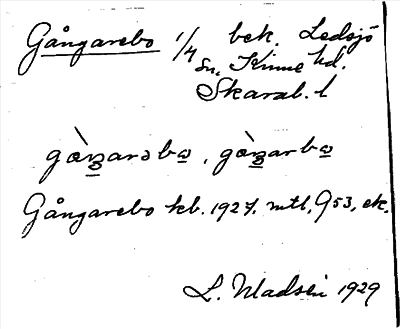 Gångarebo 1/4 bek. Ledsjö
sn, Kinne hd.
Skarab. l
gàŋarəbω, gàŋarbω
Gångarebo kb. 1927. mtl, 953, ek.
L. Madsén 1929